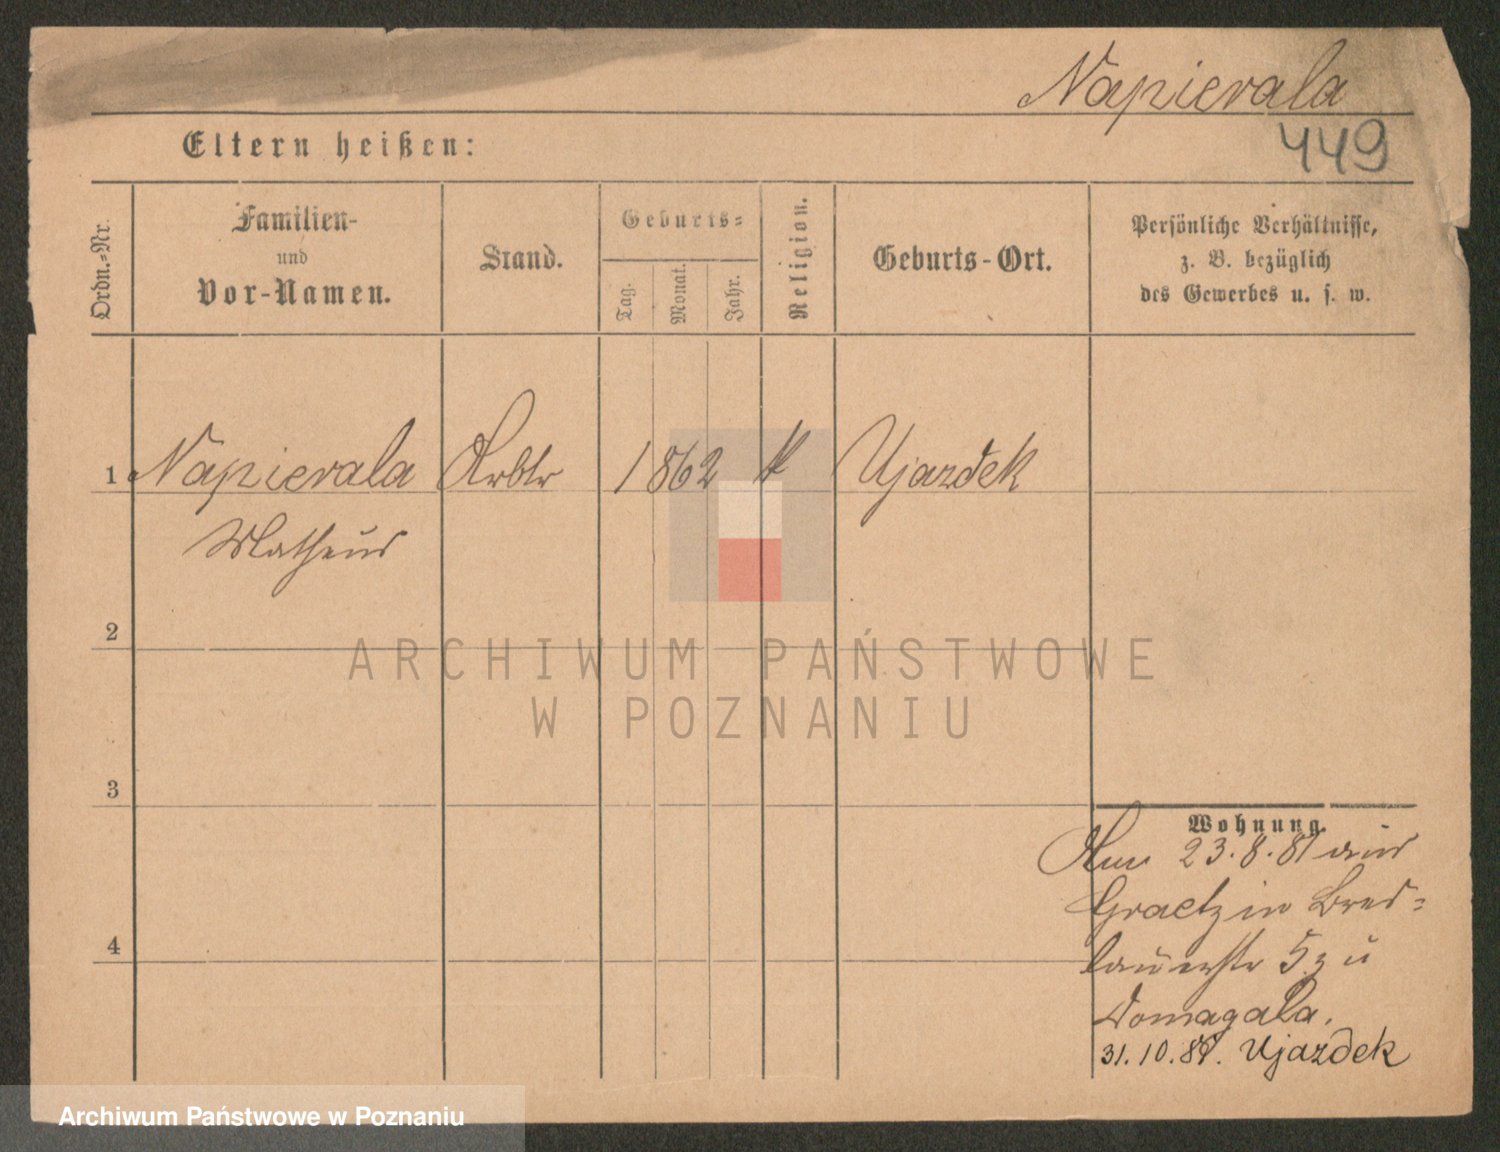 Napierala
449
Eltern heißen:
Ordn.-Nr.
Familien-
und
Vor-Namen.
Stand.
Geburts-
Tag.
Monat.
Jahr.
Religion.
Geburts-Ort.
Persönliche Verhältnisse,
z. B. bezüglich
des Gewerbes u. s. w.
1 Napierala Arbtr 1862 k Ujazdek
Matheus
2
3
4
Wohnung.
23.8.81 aus
Graetz in Bres-
lauerstr 5 z u
Domagala.
31.10.81. Ujazdek
ARCHIWUM PAŃSTWOWE
W POZNANIU
Archiwum Państwowe w Poznaniu